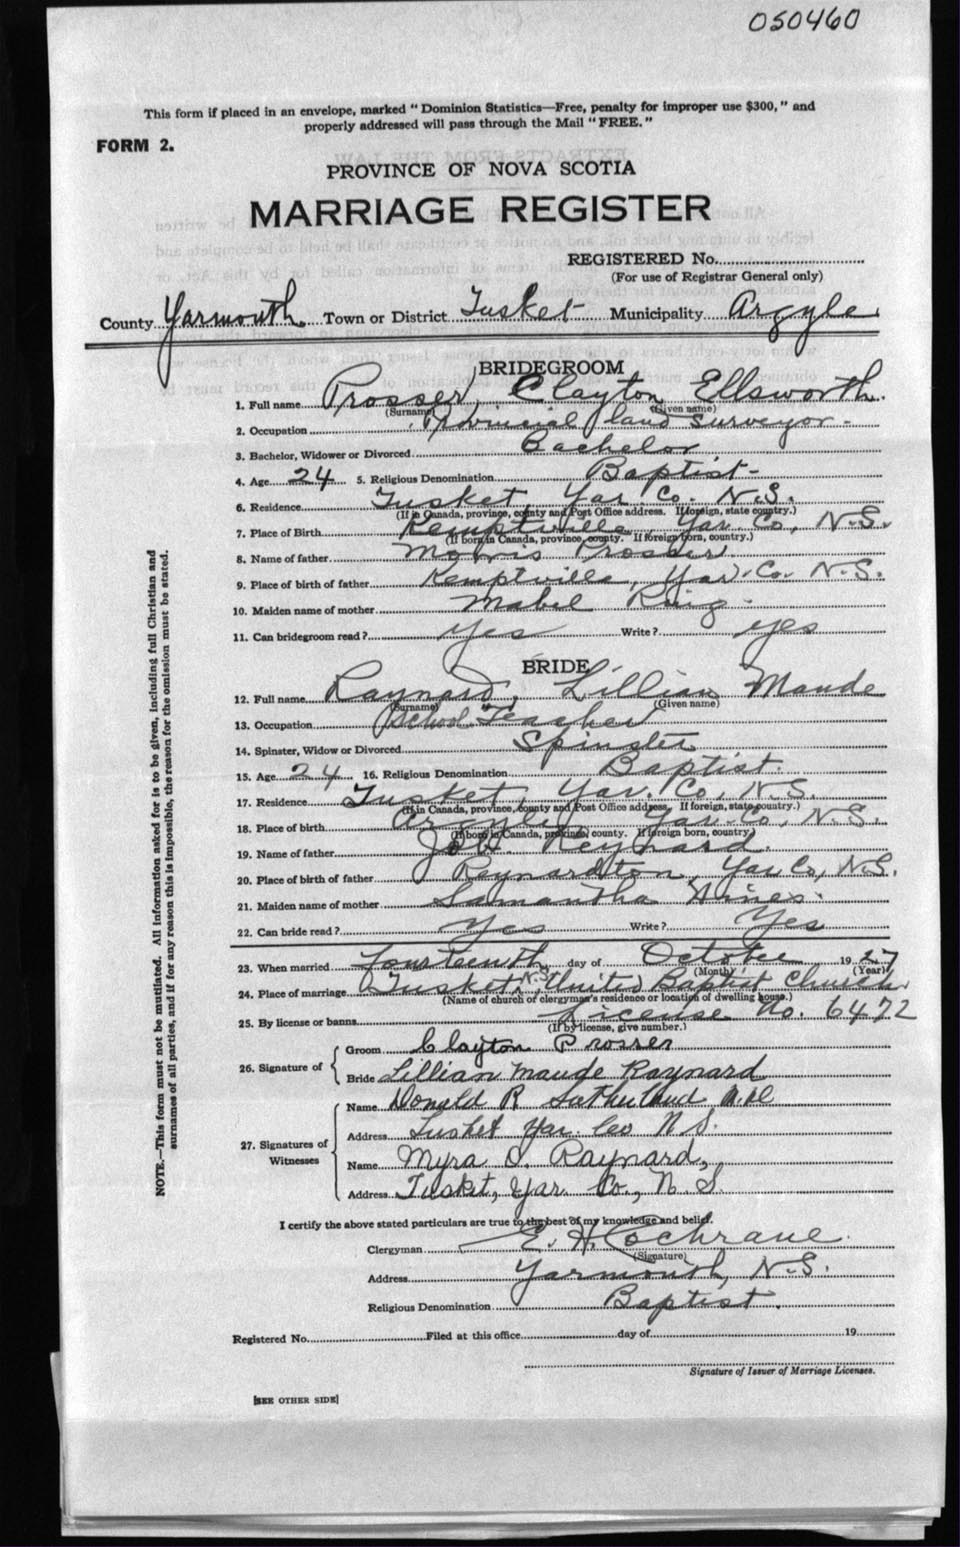 050460
This form if placed in an envelope, marked "Dominion Statistics—Free, penalty for improper use $300," and
properly addressed will pass through the Mail "FREE."
FORM 2.
PROVINCE OF NOVA SCOTIA
MARRIAGE REGISTER
REGISTERED No.
(For use of Registrar General only)
County Yarmouth Town or District Tusket Municipality Argyle
BRIDEGROOM
1. Full name Prosser, Clayton Ellsworth.
(Surname) (Given name)
2. Occupation Provincial land surveyor.
3. Bachelor, Widower or Divorced Bachelor
4. Age 24 5. Religious Denomination Baptist
6. Residence Tusket Yar Co. N.S.
(If in Canada, province, county and Post Office address. If foreign, state country.)
7. Place of Birth Kemptville, Yar. Co, N.S.
(If born in Canada, province, county. If foreign born, country.)
8. Name of father Morris Prosser.
9. Place of birth of father Kemptville, Yar. Co. N.S.
10. Maiden name of mother Mabel
11. Can bridegroom read? yes Write? yes
BRIDE
12. Full name Raynard, Lillian Maude
(Surname) (Given name)
13. Occupation School Teacher
14. Spinster, Widow or Divorced Spinster
15. Age 24 16. Religious Denomination Baptist.
17. Residence Tusket, Yar. Co, N.S.
(If in Canada, province, county and Post Office address. If foreign, state country.)
18. Place of birth Argyle Yar. Co, N.S.
(If born in Canada, province, county. If foreign born, country)
19. Name of father Reynard.
20. Place of birth of father Reynardton, Yar Co, N.S.
21. Maiden name of mother Samantha Hines.
22. Can bride read? Yes Write? Yes
23. When married fourteenth day of October 1927
(Month) (Year)
24. Place of marriage Tusket, N.S. United Baptist Church
(Name of church of clergyman's residence or location of dwelling house.)
25. By license or banns License No. 6472
(If by license, give number.)
26. Signature of
Groom Clayton Prosser
Bride Lillian Maude Raynard
27. Signatures of Witnesses
Name Donald R Sutherland M.D
Address Tusket Yar. Co N S.
Name Myra Raynard,
Address Tusket, Yar. Co., N S.
I certify the above stated particulars are true to the best of my knowledge and belief.
Clergyman E. H. Cochrane.
(Signature)
Address Yarmouth, N.S.
Religious Denomination Baptist.
Registered No. Filed at this office day of 19
Signature of Issuer of Marriage Licenses.
[SEE OTHER SIDE]
NOTE.—This form must not be mutilated. All information asked for is to be given, including full Christian and
surnames of all parties, and if for any reason this is impossible, the reason for the omission must be stated.